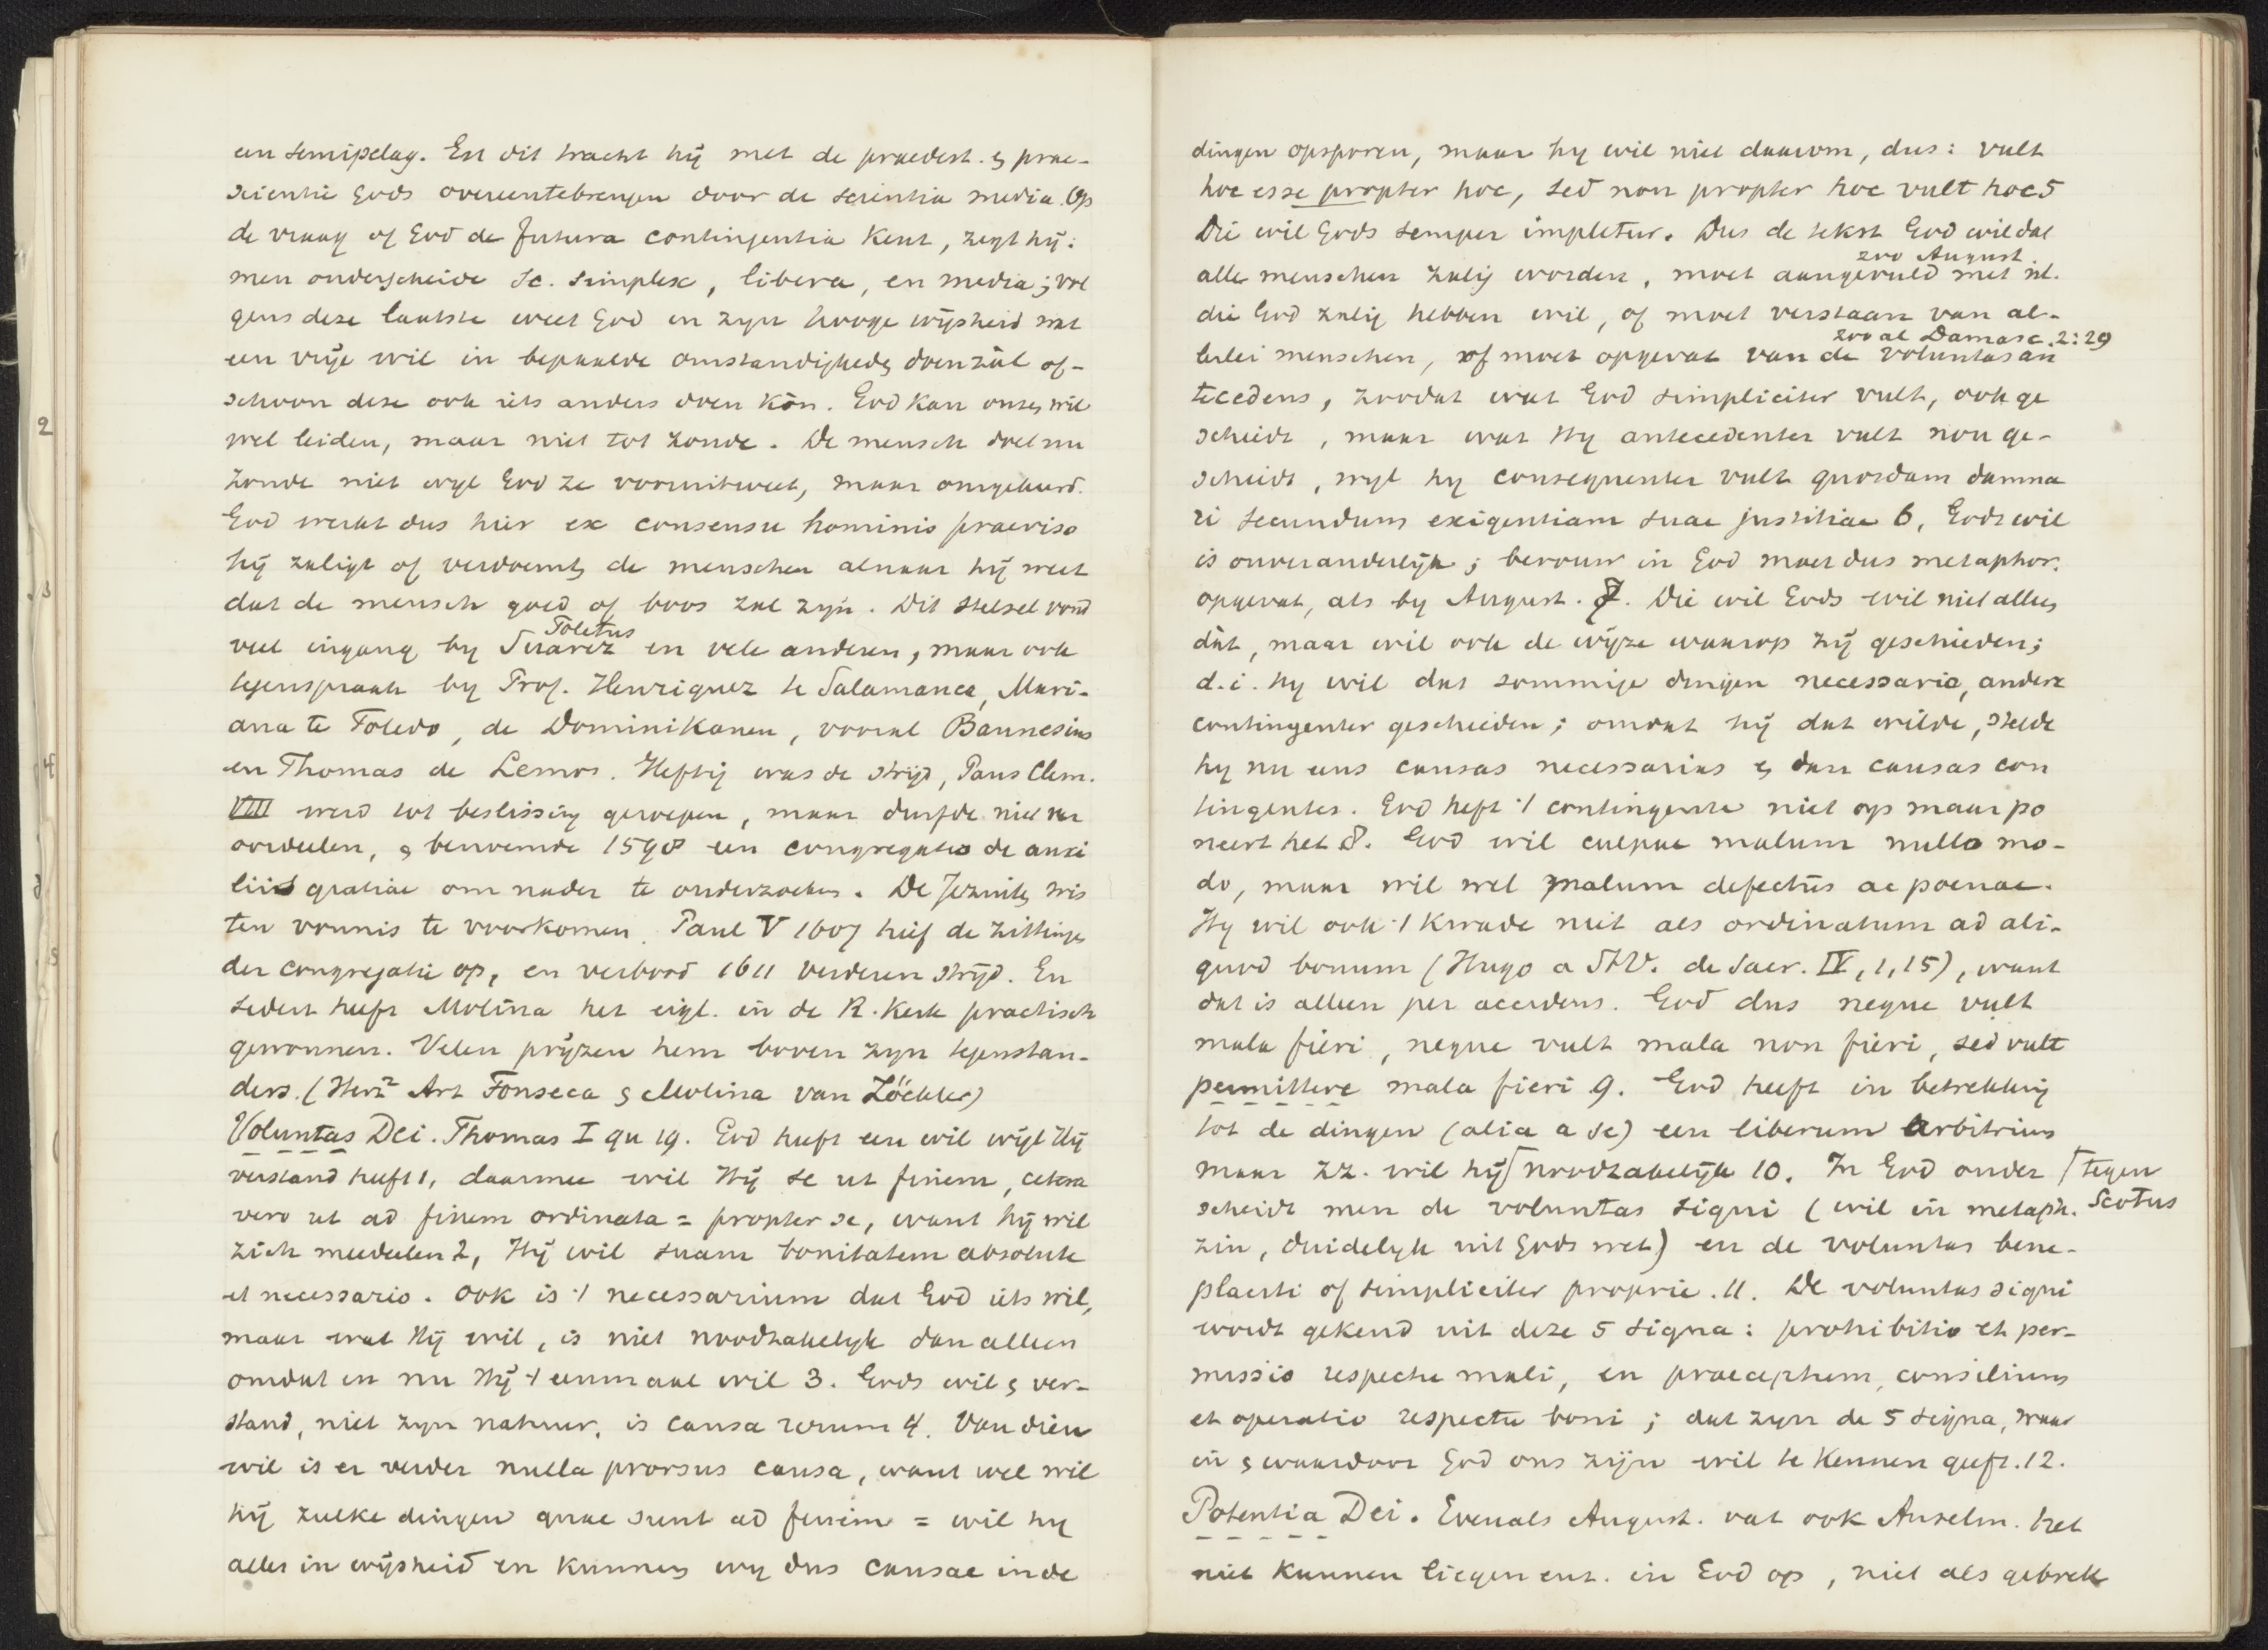 een semipelag. En dit tracht hij met de praedest. & prae-
scientie Gods overeentebrengen door de scientia media. Op
de vraag of God de futura contingentia kent, zegt hij:
men onderscheide sc. simplex, libera, en media; vol
gens deze laatste weet God in zijn hooge wijsheid wat
een vrije wil in bepaalde omstandigheden doen zàl of-
schoon deze ook iets anders doen kòn. God kan onzen wil
wel leiden, maar niet tot zonde. De mensch doet nu
zonde niet wijl God ze vooruitweet, maar omgekeerd.
God werkt dus hier ex consensu hominis praeviso
hij zaligt of verdoemt de menschen alnaar hij weet
dat de mensch goed of boos zal zijn. Dit stelsel vond
Toletus
veel ingang by Suarez en vele anderen, maar ook
tegenspraak by Prof. Henriquez te Salamanca, Mari-
ana te Toledo, de Dominikanen, vooral Bannesius
en Thomas de Lemos. Heftig was de strijd, Paus Clem.
VIII werd tot beslissing geroepen, maar durfde niet ver
oordeelen, & benoemde 1598 een congregatio de auxi
liis gratiae om nader te onderzoeken. De Jezuiten wis
ten vonnis te voorkomen. Paul V 1607 hief de zittingen
der congregatie op, en verbood 1611 verderen strijd. En
sedert heeft Molina het eigl. in de R. Kerk practisch
gewonnen. Velen prijzen hem boven zijn tegenstan-
ders. (Herz² Art Fonseca & Molina van Zöckler)
Voluntas Dei. Thomas I qu 19. God heeft een wil wijl Hij
verstand heeft 1, daarmee wil Hij se ut finem, cetera
vero ut ad finem ordinata = propter se, want hij wil
zich meedeelen 2, Hij wil suam bonitatem absolute
et necessario. Ook is 't necessarium dat God iets wil,
maar wat Hij wil, is niet noodzakelijk dan alleen
omdat en nu Hij 't eenmaal wil 3. Gods wil & ver-
stand, niet zijn natuur, is causa rerum 4. Van dien
wil is er verder nulla prorsus causa, want wel wil
hij zulke dingen quae sunt ad finem = wil hij
alles in wijsheid en kunnen wij dus causae in de
dingen opsporen, maar hij wil niet daarom, dus: vult
hoc esse propter hoc, sed non propter hoc vult hoc 5
Die wil Gods semper impletur. Dus de tekst God wil dat
zoo August.
alle menschen zalig worden, moet aangevuld met nl.
die God zalig hebben wil, of moet verstaan van al-
zooal Damasc. 2:29
lerlei menschen, of moet opgevat van de voluntas an
tecedens, zoodat wat God simpliciter vult, ook ge
schiedt, maar wat Hij antecedenter vult non ge-
schiedt, wijl hij consequenter vult quosdam damna
ri secundum exigentiam suae justitiae 6, Gods wil
is onveranderlijk; berouw in God moet dus metaphor.
opgevat, als by August. 7. Die wil Gods wil niet alleen
dàt, maar wil ook de wijze waarop zij geschieden;
d.i. hij wil dat sommige dingen necessario, andere
contingenter geschieden; omdat hij dat wilde, stelde
hij nu eens causas necessarias & dan causas con
tingentes. God heft 't contingente niet op maar po
neert het 8. God wil culpae malum nullo mo-
do, maar wil wel malum defectus ac poenae.
Hij wil ook 't kwade niet als ordinatum ad ali-
quod bonum (Hugo a St V. de Sacr. IV, 1, 15), want
dat is alleen per accidens. God dus neque vult
mala fieri, neque vult mala non fieri, sed vult
permittere mala fieri 9. God heeft in betrekking
tot de dingen (alia a se) een liberum arbitrium
maar zz. wil hij ⌈ noodzakelijk 10. In God onder ⌈ tegen
scheidt men de voluntas signi (wil in metaph. Scotus
zin, duidelijk uit Gods wet) en de voluntas bene-
placiti of simpliciter proprie. 11. De voluntas signi
wordt gekend uit deze 5 signa: prohibitio et per-
missio respectu mali, en praeceptum, consilium
et operatio respectu boni; dat zijn de 5 signa, waar
in & waardoor God ons zijn wil te kennen geeft. 12.
Potentia Dei. Evenals August. vat ook Anselm. het
niet kunnen liegen enz. in God op, niet als gebrek
2
3
4
5